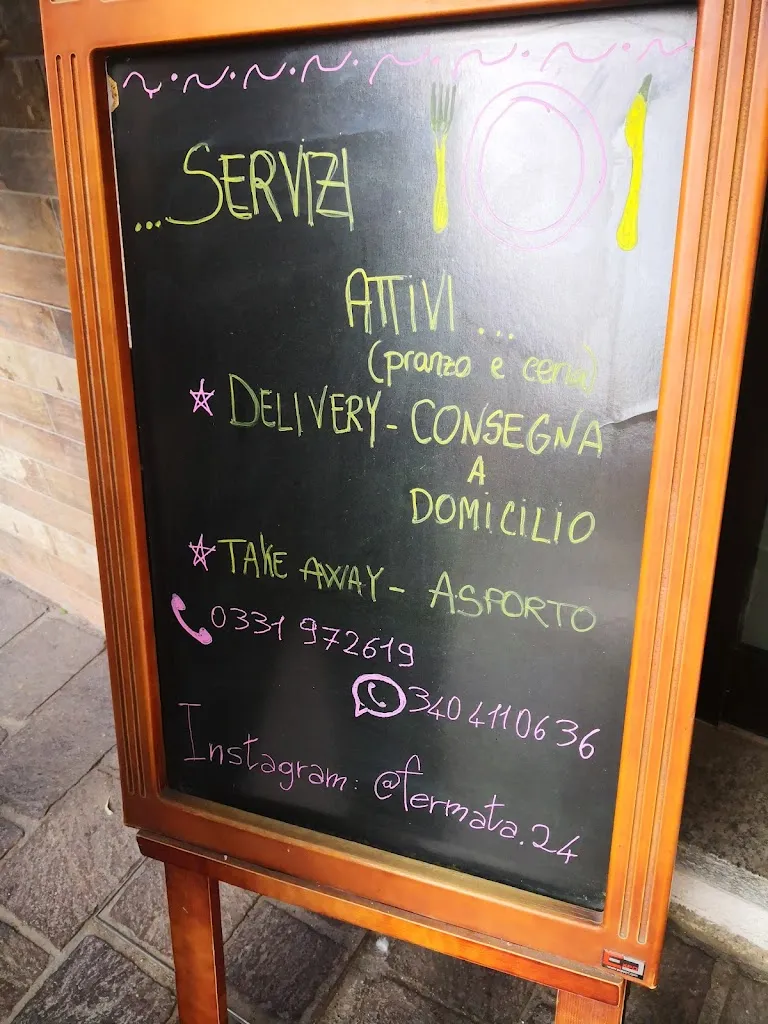 ...SERVIZI
ATTIVI...
(pranzo e cena)
DELIVERY - CONSEGNA
A
DOMICILIO
TAKE AWAY - ASPORTO
0331 972619
340 4110636
Instagram: @fermata.24